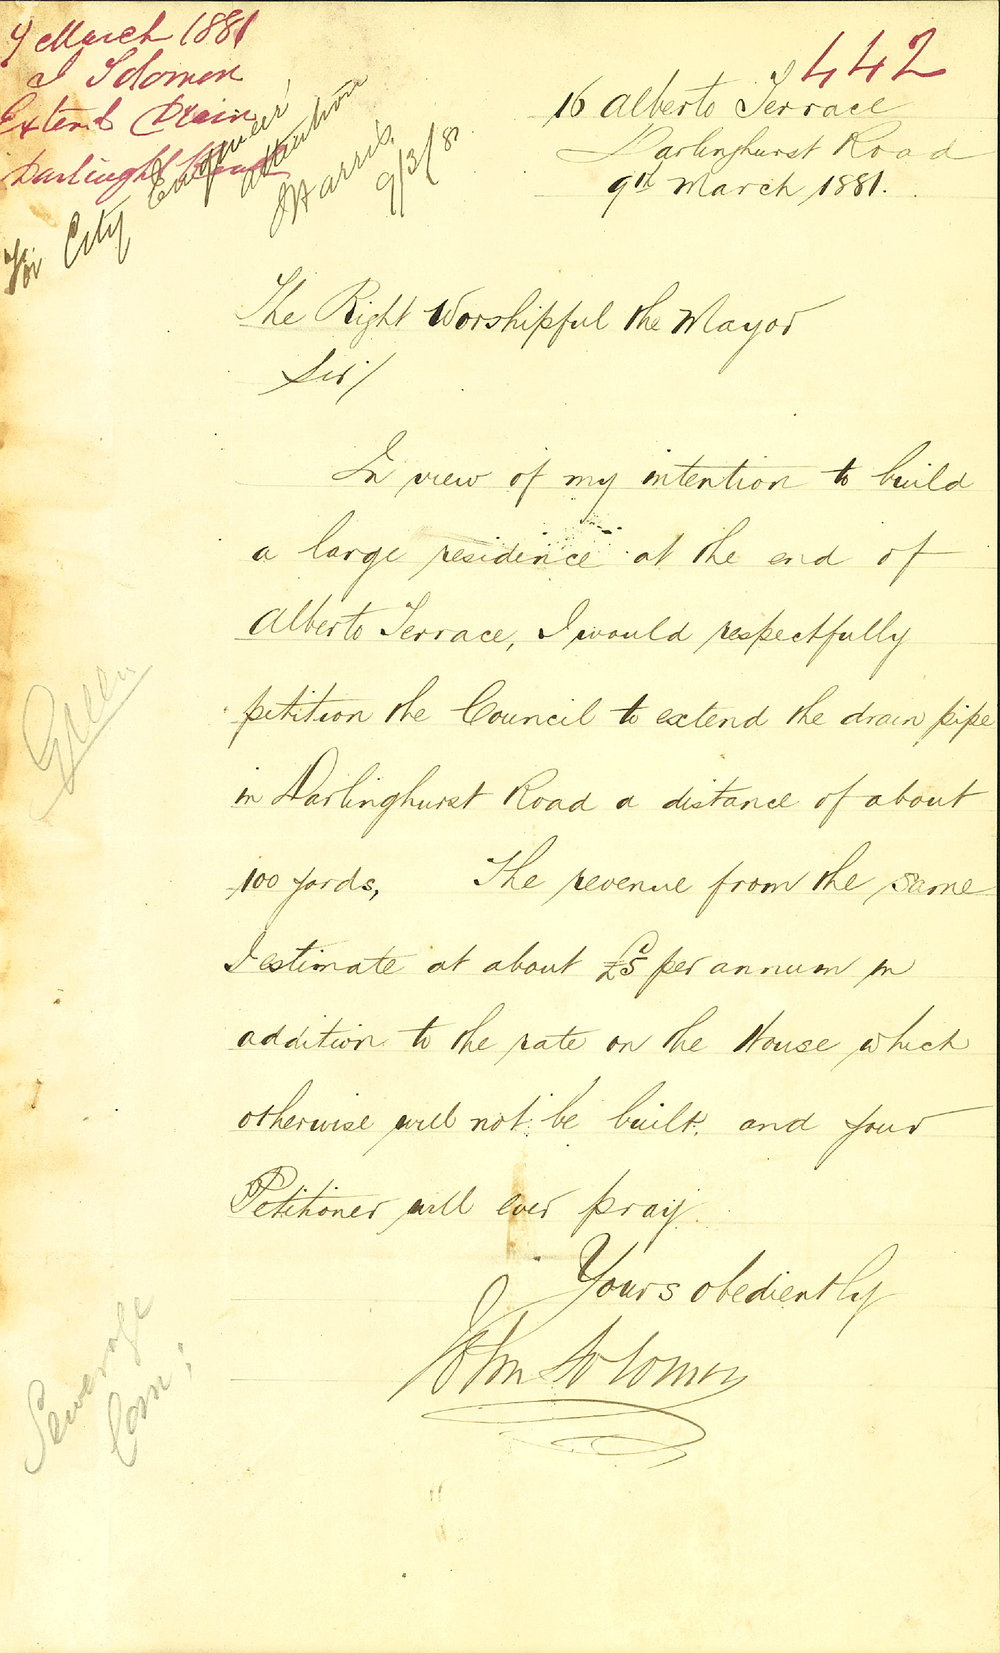 9 March 1881
J Solomon
Extend Drain
Darlinght Road
For City Engineers'
attention
Harris
9/3/81
442
16 Alberto Terrace
Darlinghurst Road
9th March 1881.
The Right Worshipful the Mayor
Sir/
In view of my intention to build
a large residence at the end of
Alberto Terrace, I would respectfully
petition the Council to extend the drain pipe
in Darlinghurst Road a distance of about
100 yards, The revenue from the same
I estimate at about £5 per annum in
addition to the rate on the House which
otherwise will not be built. and your
Petitioner will ever pray.
Yours obediently
John Solomon
Green
Sewerage
Com: